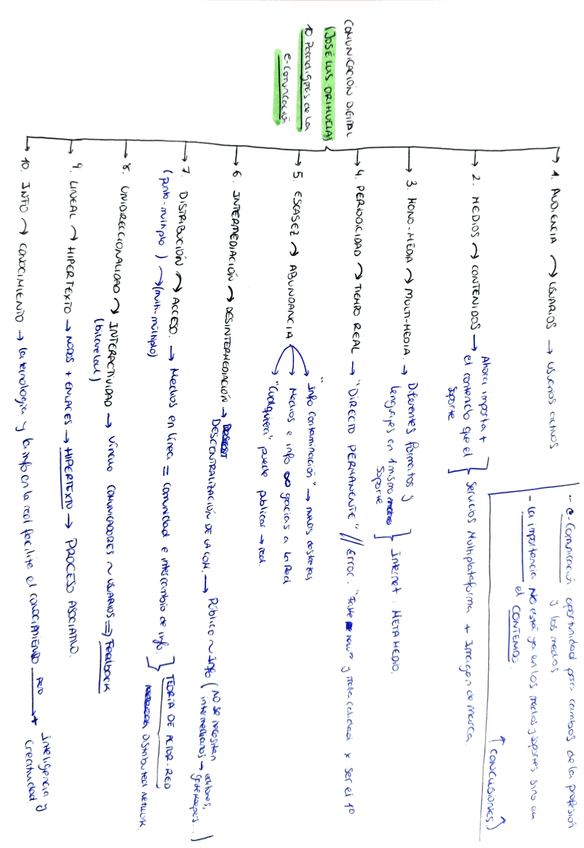 COMUNICACIÓN DIGITAL
(JOSÉ LUIS ORIHUELA)
10 Paradigmas de la
e-comunicación
1. AUDIENCIA → USUARIOS → usuarios activos
2. MEDIOS → CONTENIDOS → Ahora importa +
el contenido que el
soporte
} Servicios Multiplataforma + Imagen de marca
3. MONO-MEDIA → MULTI-MEDIA → Diferentes formatos y
lenguajes en 1 mismo
soporte
} Internet: METAMEDIO.
4. PERIODICIDAD → TIEMPO REAL → "DIRECTO PERMANENTE" // Error: y x ser el 1º
5. ESCASEZ → ABUNDANCIA
"Info contaminación" → nuevas destrezas
Medios e info ∞ gracias a la Red
"Cualquiera" puede publicar → red.
6. INTERMEDIACIÓN → DESINTERMEDIACIÓN →
DESCENTRALIZACIÓN DE LA COM. → Público ~ info (NO se necesitan
intermediarios → editores,
gatekeepers...)
7. DISTRIBUCIÓN → ACCESO. → Medios en línea = comunidad e intercambio de info.
(punto-múltiplo) → (multi-múltiplo)
} TEORÍA DE ACTOR-RED
DISTRIBUTED NETWORK.
8. UNIDIRECCIONALIDAD → INTERACTIVIDAD → Vínculo COMUNICADORES ~ USUARIOS ⇒ Feedback
(bilateral)
9. LINEAL → HIPERTEXTO → NODOS + ENLACES → HIPERTEXTO → PROCESO ASOCIATIVO.
10. INFO → CONOCIMIENTO → La tecnología y la info en la red facilita el CONOCIMIENTO PERO → + inteligencia y
creatividad
- e-Comunicación oportunidad para cambios de la profesión
y los medios.
- La importancia NO está ya en los medios y soportes sino en
el CONTENIDO.
↑ (CONCLUSIONES)